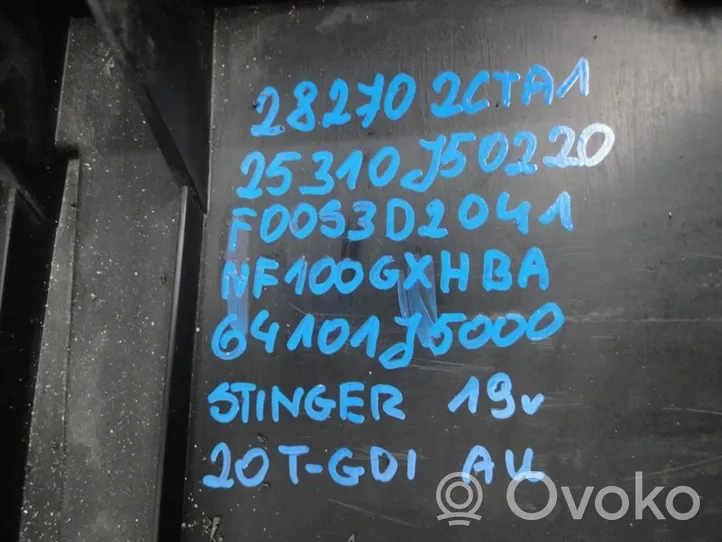 28270 2CTA1
25310J50220
F00S3D2041
NF100GXHBA
64101J5000
STINGER 19v
20T-GDI AU
Ovoko